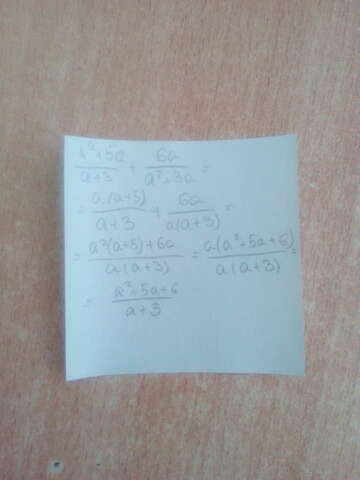 a²+5a/a+3 + 6a/a²+3a =
= a(a+5)/a+3 + 6a/a(a+3) =
= a²(a+5)+6a/a(a+3) = a(a²+5a+6)/a(a+3) =
= a²+5a+6/a+3